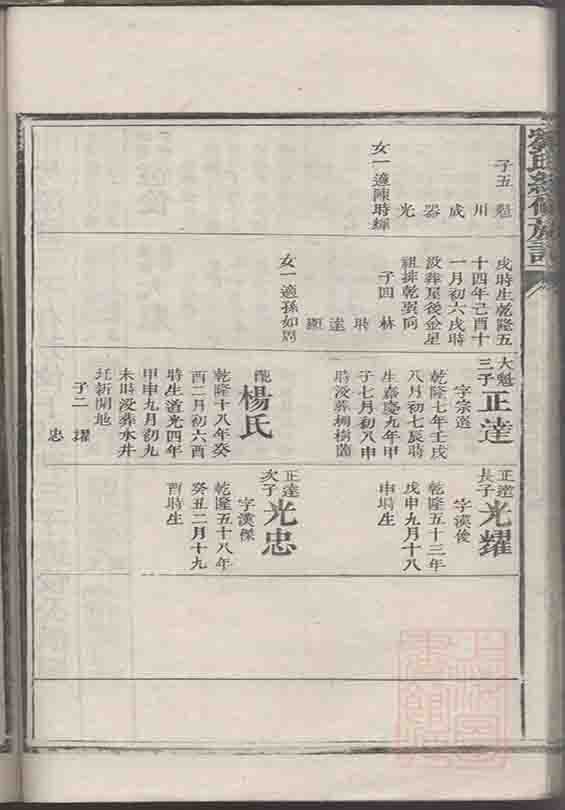 子五 魁
川
成
器
光
女一適陳時輝
戌時生乾隆五
十四年己酉十
一月初六戌時
沒葬屋後金星
祖排乾巽向
子四 林
時
達
顯
女一適孫如周
大魁
三子
正達
字宗選
乾隆七年壬戌
八月初七辰時
生嘉慶九年甲
子七月初八申
時沒葬桐樹
配
楊氏
乾隆十八年癸
酉二月初六酉
時生道光四年
甲申九月初九
未時沒葬水井
圫新開地
子二 耀
忠
正達
長子
光耀
字漢俊
乾隆五十三年
戊申九月十八
申時生
正達
次子
光忠
字漢傑
乾隆五十八年
癸丑二月十九
酉時生